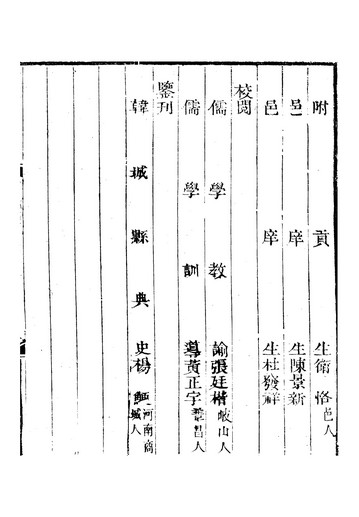 附貢生衛恪邑人
邑庠生陳景新
邑庠生杜發祥
校閱
儒學教諭張廷楷岐山人
儒學訓導黃正字鞏昌人
鑒刊
韓城縣典史楊 河南商城人